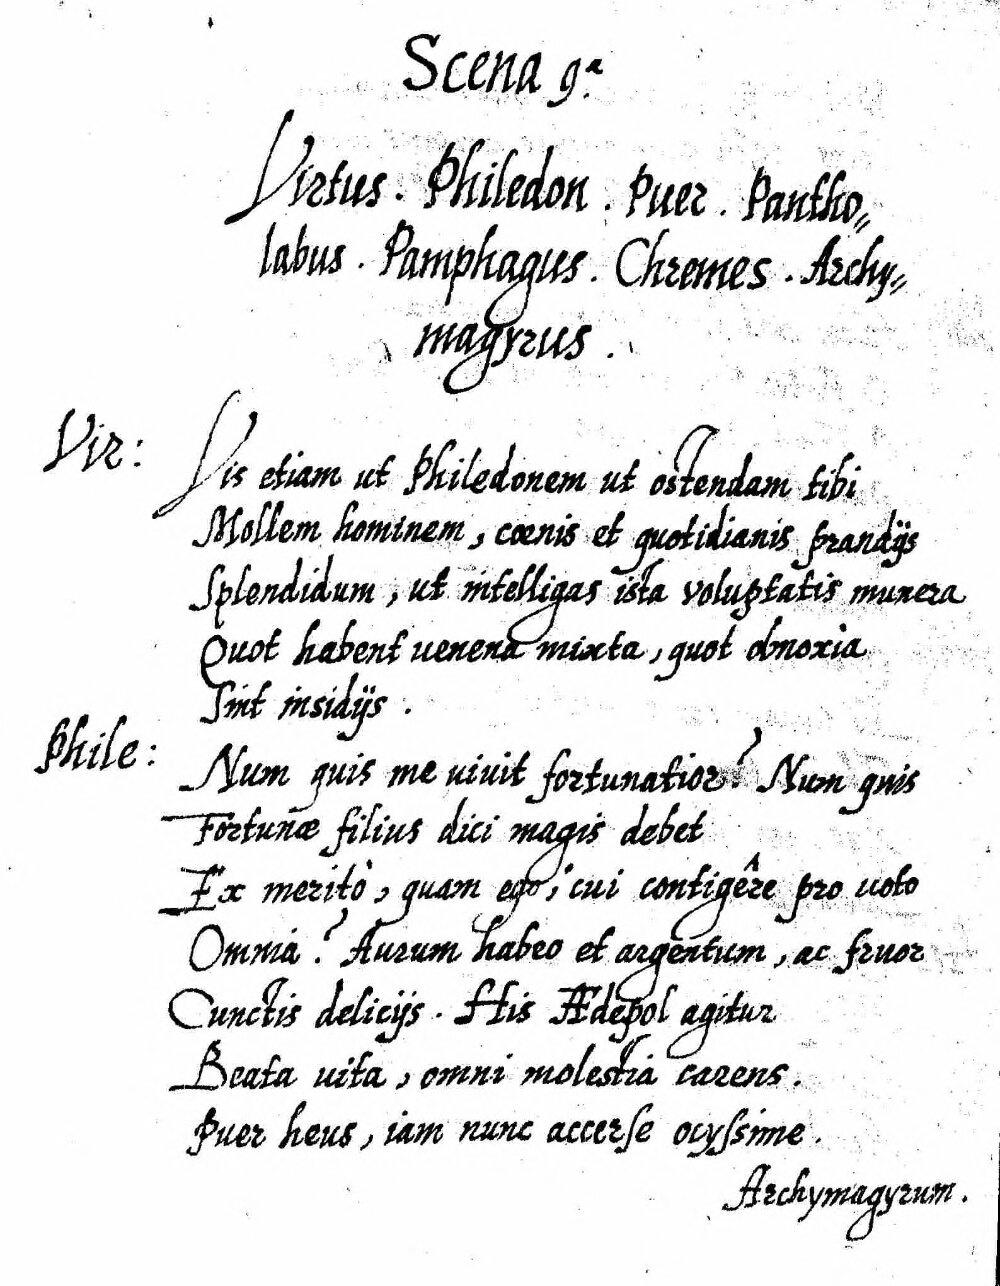 Scena 9.ª
Virtus. Philedon. Puer. Pantho„
labus. Pamphagus. Chremes. Archy„
magyrus.
Vir: Vis etiam ut Philedonem ut ostendam tibi
Mollem hominem, cœnis et quotidianis prandijs
Splendidum, ut intelligas ista voluptatis munera
Quot habent uenena mixta, quot obnoxia
Sint insidijs.
Phile: Num quis me uiuit fortunatior? Num quis
Fortunæ filius dici magis debet
Ex meritò, quam ego, cui contigêre pro uoto
Omnia? Aurum habeo et argentum, ac fruor
Cunctis delicijs. His Ædepol agitur
Beata uita, omni molestia carens.
Puer heus, iam nunc accerse ocyssime.
Archymagyrum.